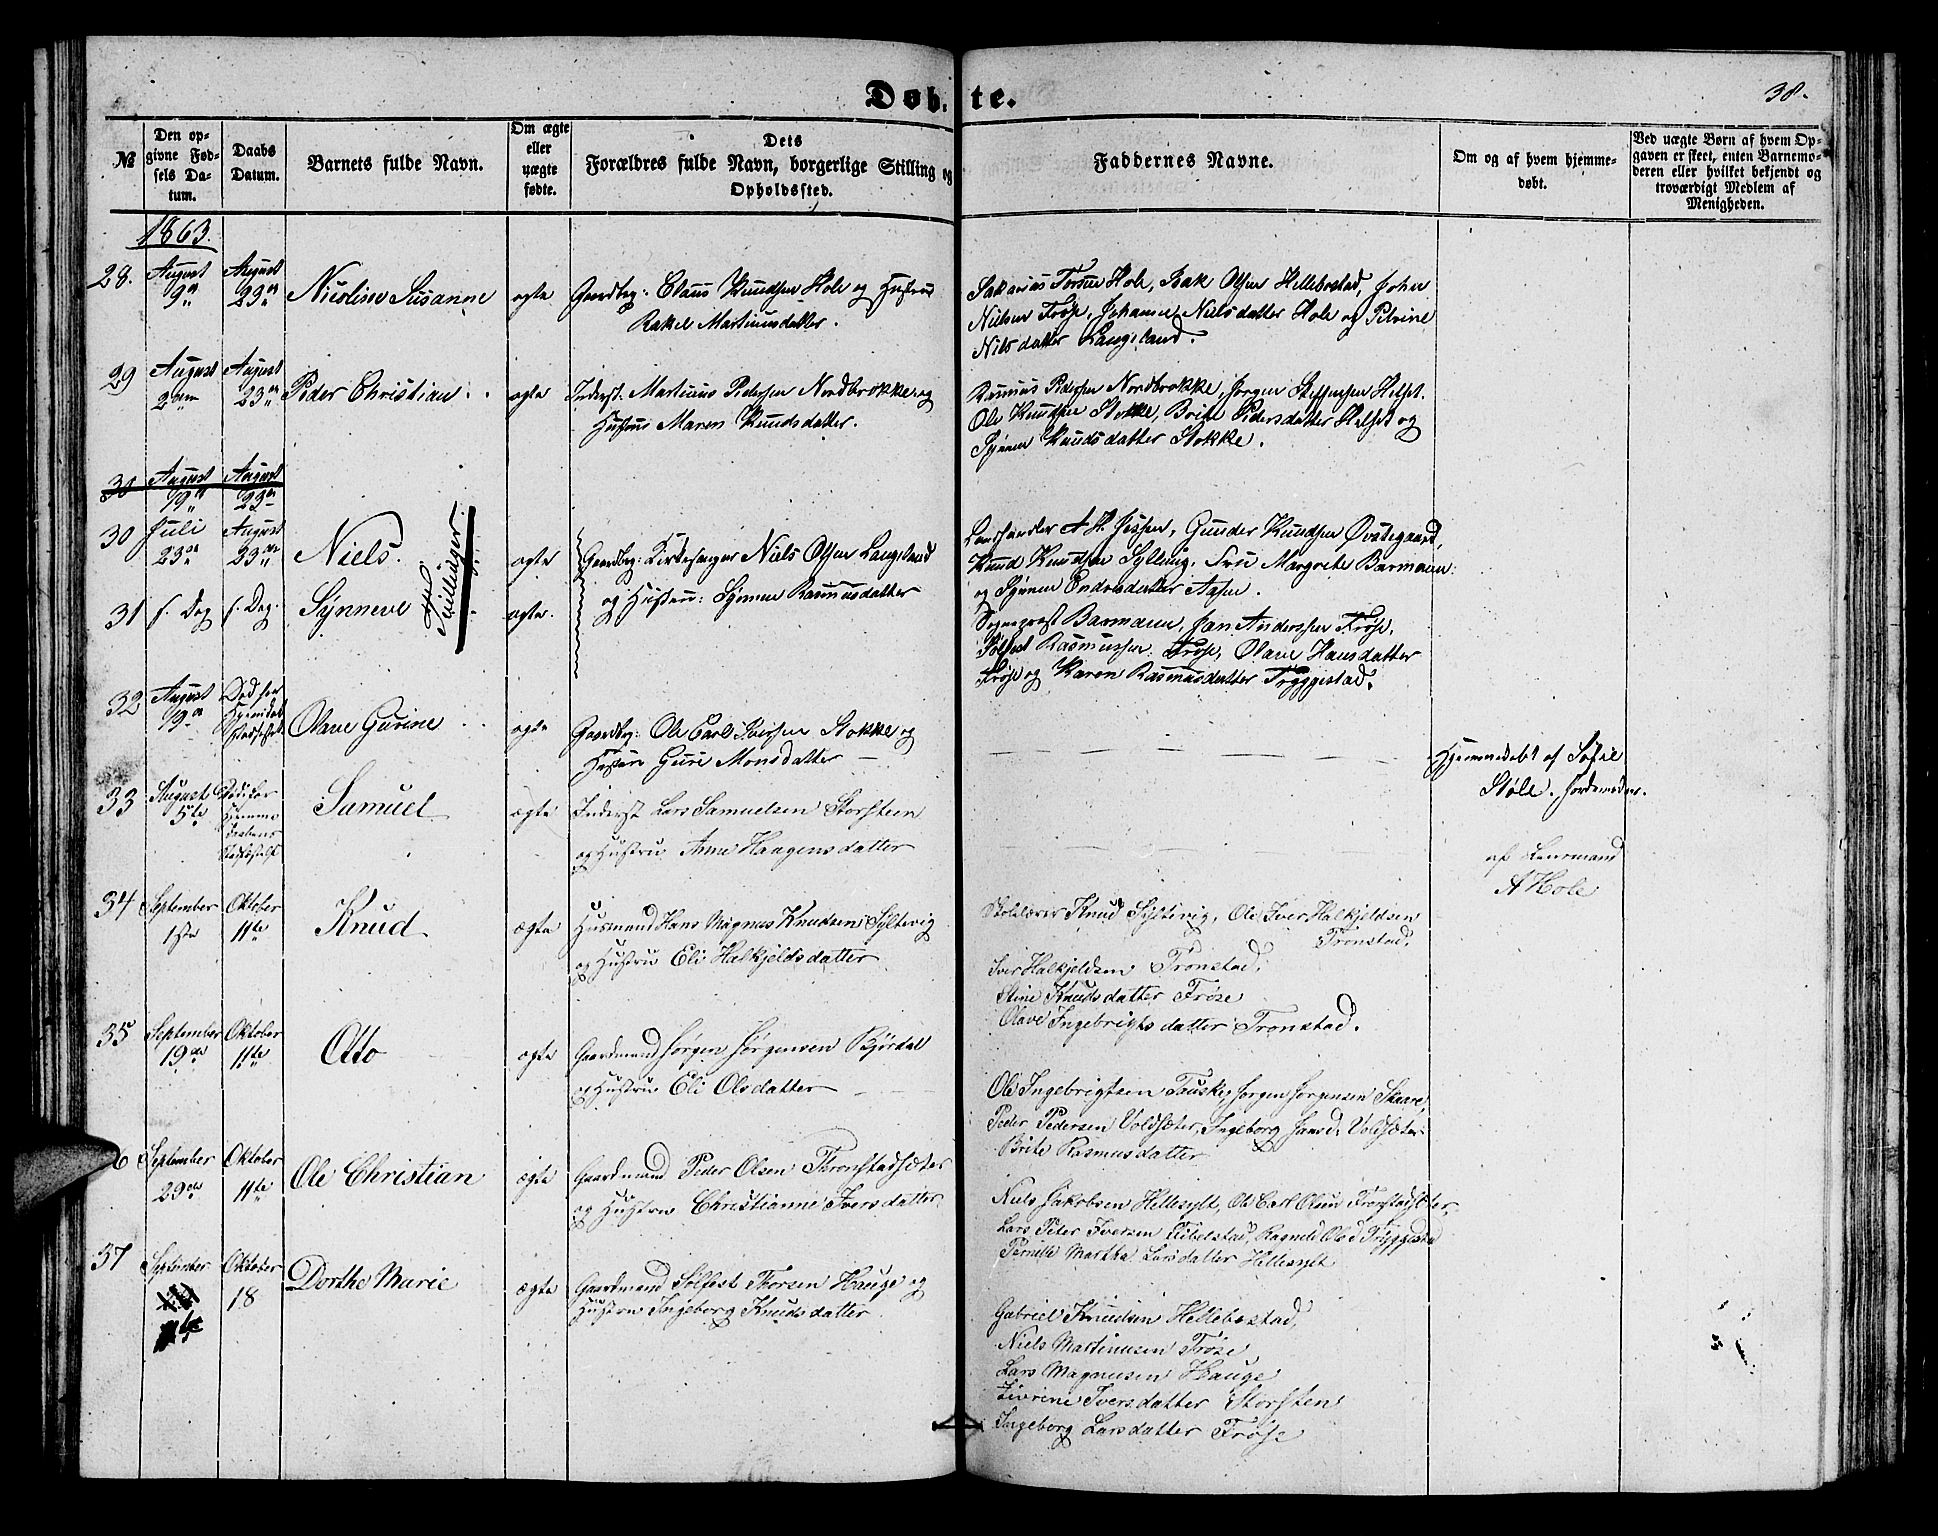 Døbte.
38.
№
Den opgivne Fødsels Datum.
Daabs Datum.
Barnets fulde Navn.
Om ægte eller uægte fødte.
Dets Forældres fulde Navn, borgerlige Stilling og Opholdssted.
Faddernes Navne.
Om og af hvem hjemmedøbt.
Ved uægte Børn af hvem Opgaven er skeet, enten Barnemoderen eller hvilket bekjendt og troværdigt Medlem af Menigheden.
1863.
28. August 9de August 23de Nicoline Susanne ægte Gaardbrg: Claus Knudsen Hole og Hustru
Rakel Martinusdatter.
Sakarias Torsen Hole, Bak Olsen Hellebostad, Johan
Nielsen Frøse, Johanne Nielsdatter Hole og Petrine
Nilsdatter Langeland.
29 August 2den August 23de Peder Christian ægte Inderst. Martinus Pedersen Nordbrokke og
Hustru Maren Knudsdatter.
Rasmus Pedersen Nordbrokke, Jørgen Steffensen Helset.
Ole Knudsen Stokke, Brite Pedersdatter Helset og
Synne Knudsdatter Stokke.
30 August 19de August 23de
30 Juli 23de August 23de Niels. ægte Gaardbrg: Kirkesanger Niels Olsen Langeland
og Hustru: Synne Rasmusdatter
Tvillinger
Landhandler A H. Jessen, Gunder Knudsen Øvstegaard,
Knud Knudsen Sylling, Fru Margrethe Barmann
og Synne Endresdatter Aasen.
31 s. Dag s. Dag. Synneve ægte.
Sogneprest Barmann, Jan Anderssen Frøse,
Solfest Rasmussen Frøse, Olave Hansdatter
Frøse og Karen Rasmusdatter Tryggestad.
32 August 19de Død før Hjemmedaab Stadfæstet Olave Gurine ægte Gaardbrg: Ole Carl Iversen Stokke og
Hustru Guri Monsdatter
Hjemmedøbt af Sofie
Støle. Jordemoder.
33 August 5te Død før Hjemmedaabens Stadfæstelse Samuel ægte Inderst Lars Samuelsen Storsteen
og Hustru Anne Haagensdatter
af Lensmand
A Hole
34 September 1ste Oktober 11te Knud ægte Husmand Hans Magnus Knudsen Syltevig
og Hustru Eli Halkjeldsdatter
Skolelærer Knud Syltevig, Ole Iver Halkjeldsen
Tronstad,
Iver Halkjeldsen Tronstad,
Stine Knudsdatter Frøse
Olave Ingebrigtsdatter Tronstad.
35 September 19de Oktober 11te Otto ægte Gaardmand Jørgen Jørgensen Bjørdal
og Hustru Eli Olsdatter
Ole Ingebrigtsen Tauske, Jørgen Jørgensen Skaare,
Peder Pedersen Voldsæter, Ingeborg Hansd: Voldsæter
Brite Rasmusdatter
6 September 29de Oktober 11te Ole Christian ægte Gaardmand Peder Olsen Thronstadsæter
og Hustru Christianne Iversdatter
Niels Jakobsen Hellesylt, Ole Carl Olsen Tronstadsæter,
Lars Peter Iversen Fibelstad, Ragnele Olsd Tryggestad
Pernille Martha Larsdatter Hellesylt
37 September Oktober 18 Dorthe Marie ægte Gaardmand Solfest Thorsen Hauge og
Hustru Ingeborg Knudsdatter
Gabriel Knudsen Hellebostad,
Niels Martinusen Frøse
Lars Magnusen Hauge
Sivrine Iversdatter Storsten
Ingeborg Larsdatter Frøse